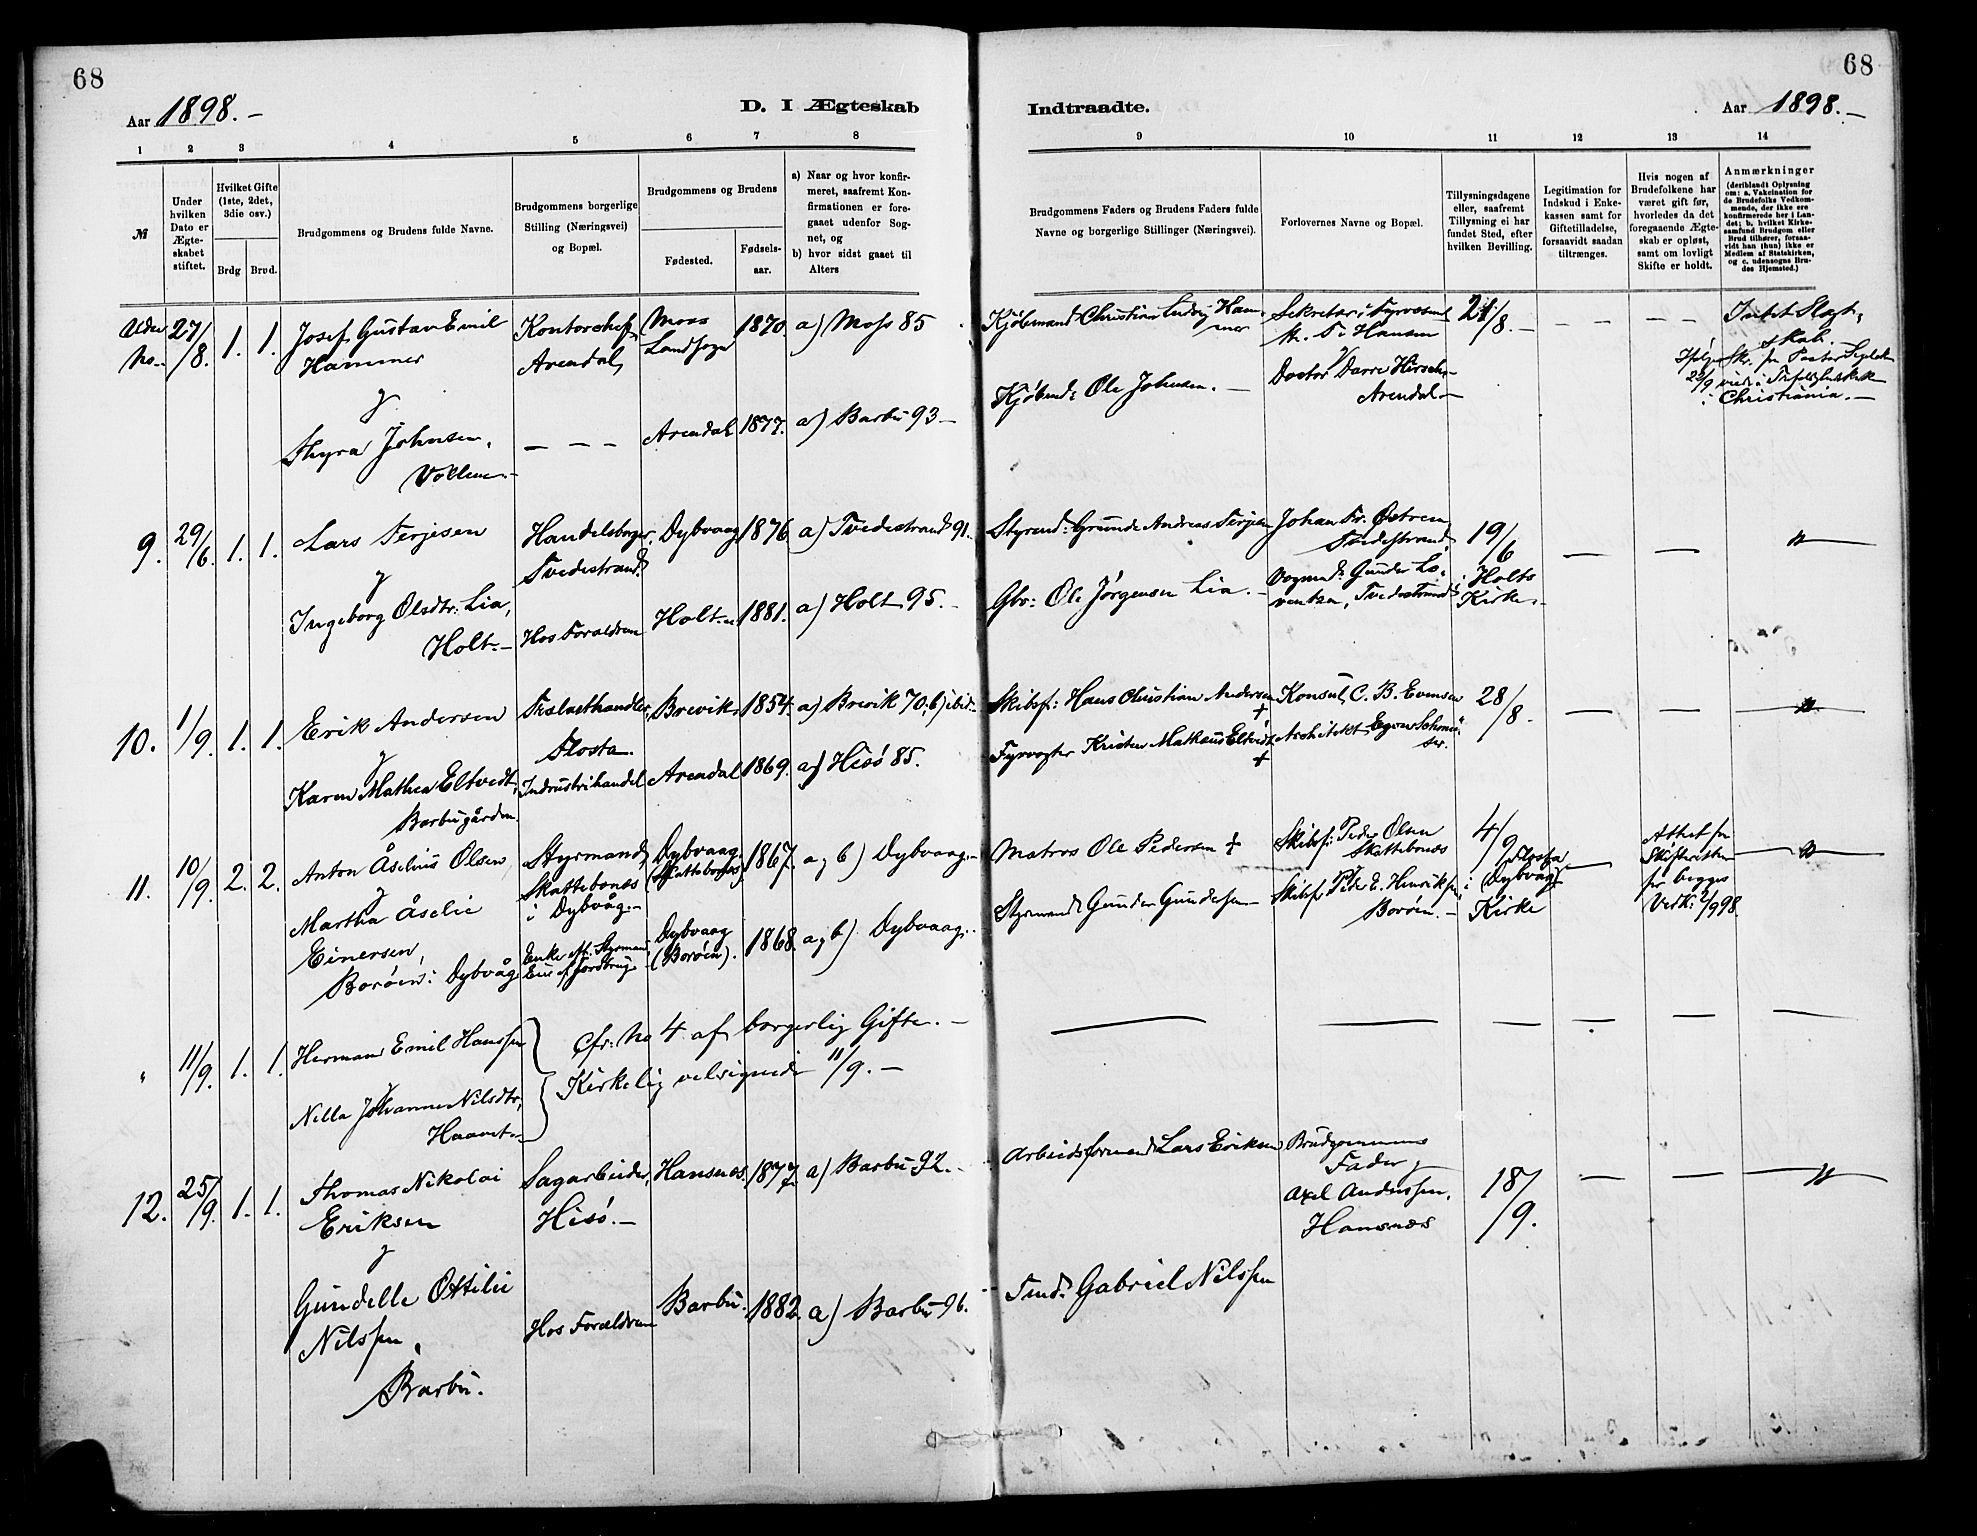 68
68
Aar 1898.-
D. I Ægteskab
Indtraadte.
Aar 1898.-
1 2 3 4 5 6 7 8 9 10 11 12 13 14
№
Under hvilken Dato er Ægteskabet stiftet.
Hvilket Gifte (1ste, 2det, 3die osv.)
Brdg Brud.
Brudgommens og Brudens fulde Navne.
Brudgommens borgerlige Stilling (Næringsvei) og Bopæl.
Brudgommens og Brudens
Fødested.
Fødselsaar.
a) Naar og hvor konfirmeret, saafremt Konfirmationen er foregaaet udenfor Sognet, og
b) hvor sidst gaaet til Alters
Brudgommens Faders og Brudens Faders fulde Navne og borgerlige Stillinger (Næringsvei).
Forlovernes Navne og Bopæl.
Tillysningsdagene eller, saafremt Tillysning ei har fundet Sted, efter hvilken Bevilling.
Legitimation for Indskud i Enkekassen samt for Giftetilladelse, forsaavidt saadan tiltrænges.
Hvis nogen af Brudefolkene har været gift før, hvorledes da det foregaaende Ægteskab er opløst, samt om lovligt Skifte er holdt.
Anmærkninger
(deriblandt Oplysning om: a. Vakcination for de Brudefolks Vedkommende, der ikke ere konfirmerede her i Landet; b. hvilket Kirkesamfund Brudgom eller Brud tilhører, forsaavidt han (hun) ikke er Medlem af Statskirken, og c. udensogns Brudes Hjemsted.)
Uden No. 27/8. 1. 1. Josef Gustav Emil Hammer
Kontorchef, Arendal, Moss Landsogn 1870. a) Moss 85
Kjøbmand Christian Ludvig Hammer
Hansen
21/8.-
Intet Slægtskab.
& Thyra Johnsen, - - - Arendal 1877. a) Barbu 93 -
Kjøbmd: Ole Johnsen. - Doctor Darre Hirsch, Arendal -
22/9 Christiania. -
9. 29/6. 1. 1. Lars Terjesen
Handelsborger, Tvedestrand. Dybvaag 1876 a) Tvedestrand 91.
Styrmd: Grunde Andreas Terjesen
Tvedestrand,
19/6 i Holts Kirke.-
& Ingeborg Olsdtr: Lia, Holt. - Hos Forældrene Holt 1881. a) Holt 95. -
Gbr: Ole Jørgensen Lia. - Tvedestrand
10. 1/9. 1. 1. Erik Andersen
Trælasthandler, Flosta. Brevik 1854. a) Brevik 70, b) ibid.
Skibsf: Hans Christian Andersen +
Konsul C. B. Evensen
28/8.
& Karen Mathea Eltvedt, Barbugården. Industrihandel Arendal 1869. a) Hisö 85.
Fyrvogter Kristen Mathæus Eltvedt +
Architekt
11. 10/9. 2. 2. Anton Åselius Olsen,
Styrmand, Skattebonæs i Dybvåg.- Dybvaag 1867. a, b) Dybvaag.-
Matros Ole Pedersen +
Skibsf: Peder Olsen Skattebonæs
4/9 i Flosta (Dybvåg) Kirke
Attest fra Skifteretten for begges Vedk: 2/9 98.
& Martha Åselie Einersen, Borøen i Dybvåg
Dybvaag (Borøen). 1868. a, b) Dybvaag..
Styrmand Gunder Gundersen - Skibsf: Peder E. Henriksen Borøen. -
" 11/9. 1. 1. Herman Emil Hanssen
Cfr: No 4 af borgerlig Gifte. -
& Nilla Johanne Nilsdtr,
Kirkelig velsignede 11/9. -
12. 25/9. 1. 1. Thomas Nikolai Eriksen
Sagarbeider, Hisö. - Hansnæs. 1877. a) Barbu 92. -
Arbeidsformand Lars Eriksen
Brudgommens Fader & Axel Andersen, Hansnæs
18/9.
& Gundelle Ottilie Nilssen, Barbu. Hos Forældrene Barbu. 1882. a) Barbu 96.
Tmd. Gabriel Nilssen